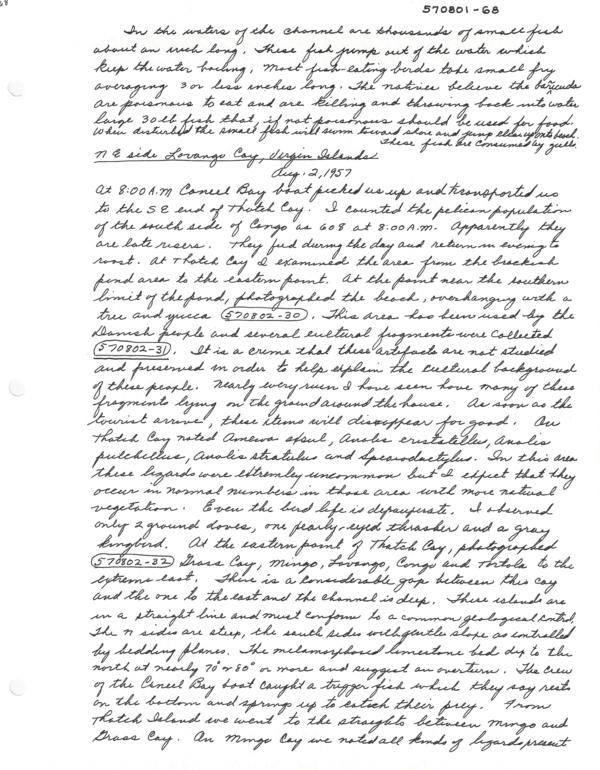 68
570801-68
In the waters of the channel are thousands of small fish
about an inch long. These fish jump out of the water which
keep the water boiling. Most fish-eating birds take small fry
averaging 3 or less inches long. The natives believe the barracuda
are poisonous to eat and are killing and throwing back into water
large 30 lb fish that, if not poisonous should be used for food.
When disturbed the small fish will swim toward shore and jump clear up onto beach.
These fish are consumed by gulls.
N E side Lovango Cay, Virgin Islands
Aug. 2, 1957
At 8:00 A.M Caneel Bay boat picked us up and transported us
to the SE end of Thatch Cay. I counted the pelican population
of the south side of Congo as 608 at 8:00 A.M. Apparently they
are late risers. They fed during the day and return in evening to
roost. At Thatch Cay I examined the area from the brackish
pond area to the eastern point. At the point near the southern
limit of the pond, photographed the beach, overhanging with a
tree and yucca (570802-30). This area has been used by the
Danish people and several cultural fragments were collected
(570802-31). It is a crime that these artifacts are not studied
and preserved in order to help explain the cultural background
of these people. Nearly every ruin I have seen have many of these
fragments lying on the ground around the house. As soon as the
tourist arrive, these items will disappear for good. On
Thatch Cay noted Ameiva exsul, Anolis cristatellus, Anolis
pulchellus, Anolis stratulus and Sphaerodactylus. In this area
these lizards were extremely uncommon but I expect that they
occur in normal numbers in those area with more natural
vegetation. Even the bird life is depauperate. I observed
only 2 ground doves, one pearly-eyed thrasher and a gray
kingbird. At the eastern point of Thatch Cay, photographed
(570802-32) Grass Cay, Mingo, Lovango, Congo and Tortola to the
extreme east. There is a considerable gap between this cay
and the one to the east and the channel is deep. These islands are
in a straight line and must conform to a common geological control.
The N sides are steep, the south sides with gentle slope as controlled
by bedding planes. The metamorphosed limestone bed dip to the
north at nearly 70° or 80° or more and suggest an overturn. The crew
of the Caneel Bay boat caught a trigger fish which they say rests
on the bottom and springs up to catch their prey. From
Thatch Island we went to the straights between Mingo and
Grass Cay. On Mingo Cay we noted all kinds of lizards present